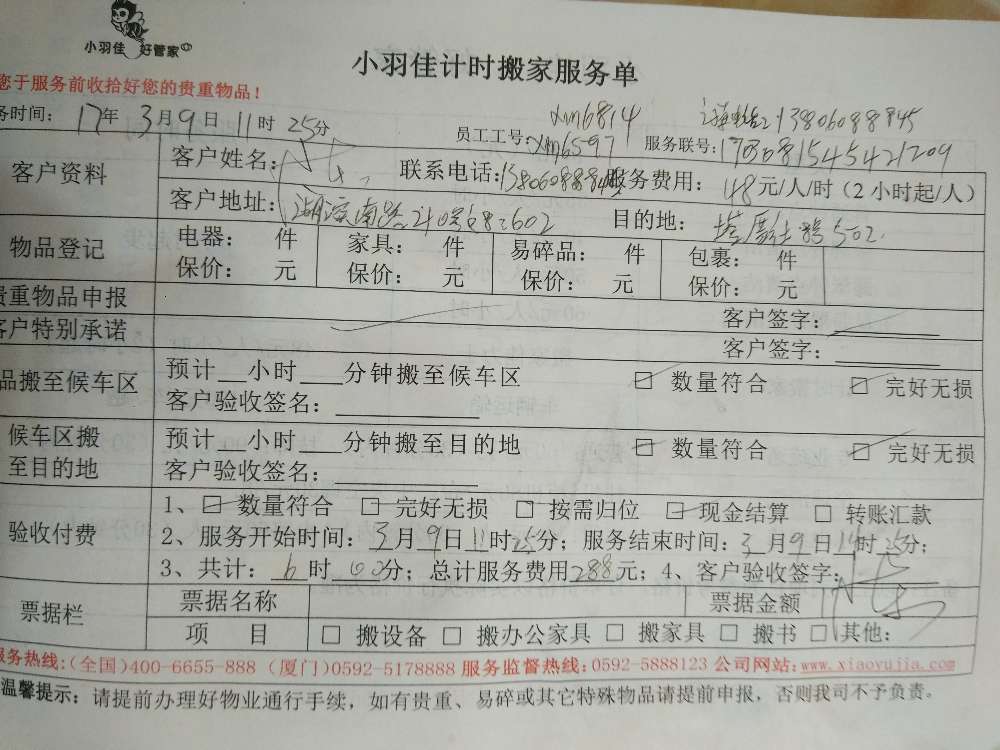 小羽佳 好管家
小羽佳计时搬家服务单
您于服务前收拾好您的贵重物品！
务时间： 17年 3月9日 11时 25分
xm6814 13806088845
员工工号：xm6597 服务联号：
客户资料
客户姓名： 联系电话： 服务费用： 48元/人/时（2小时起/人）
客户地址： 602 目的地： 502
物品登记
电器： 件 家具： 件 易碎品： 件 包裹： 件
保价： 元 保价： 元 保价： 元 保价： 元
贵重物品申报 客户签字：
客户特别承诺 客户签字：
品搬至候车区
预计__小时___分钟搬至候车区 数量符合 完好无损
客户验收签名：
候车区搬至目的地
预计__小时___分钟搬至目的地 数量符合 完好无损
客户验收签名：
验收付费
1、 数量符合 完好无损 按需归位 现金结算 转账汇款
2、服务开始时间：3月9日11时25分；服务结束时间：3月9日14时25分；
3、共计：6时00分；总计服务费用288元；4、客户验收签字：
票据栏
票据名称 票据金额
项 目 搬设备 搬办公家具 搬家具 搬书 其他：
服务热线：(全国)400-6655-888 (厦门)0592-5178888 服务监督热线：0592-5888123 公司网站：www.xiaoyujia.com
温馨提示：请提前办理好物业通行手续，如有贵重、易碎或其它特殊物品请提前申报，否则我司不予负责。